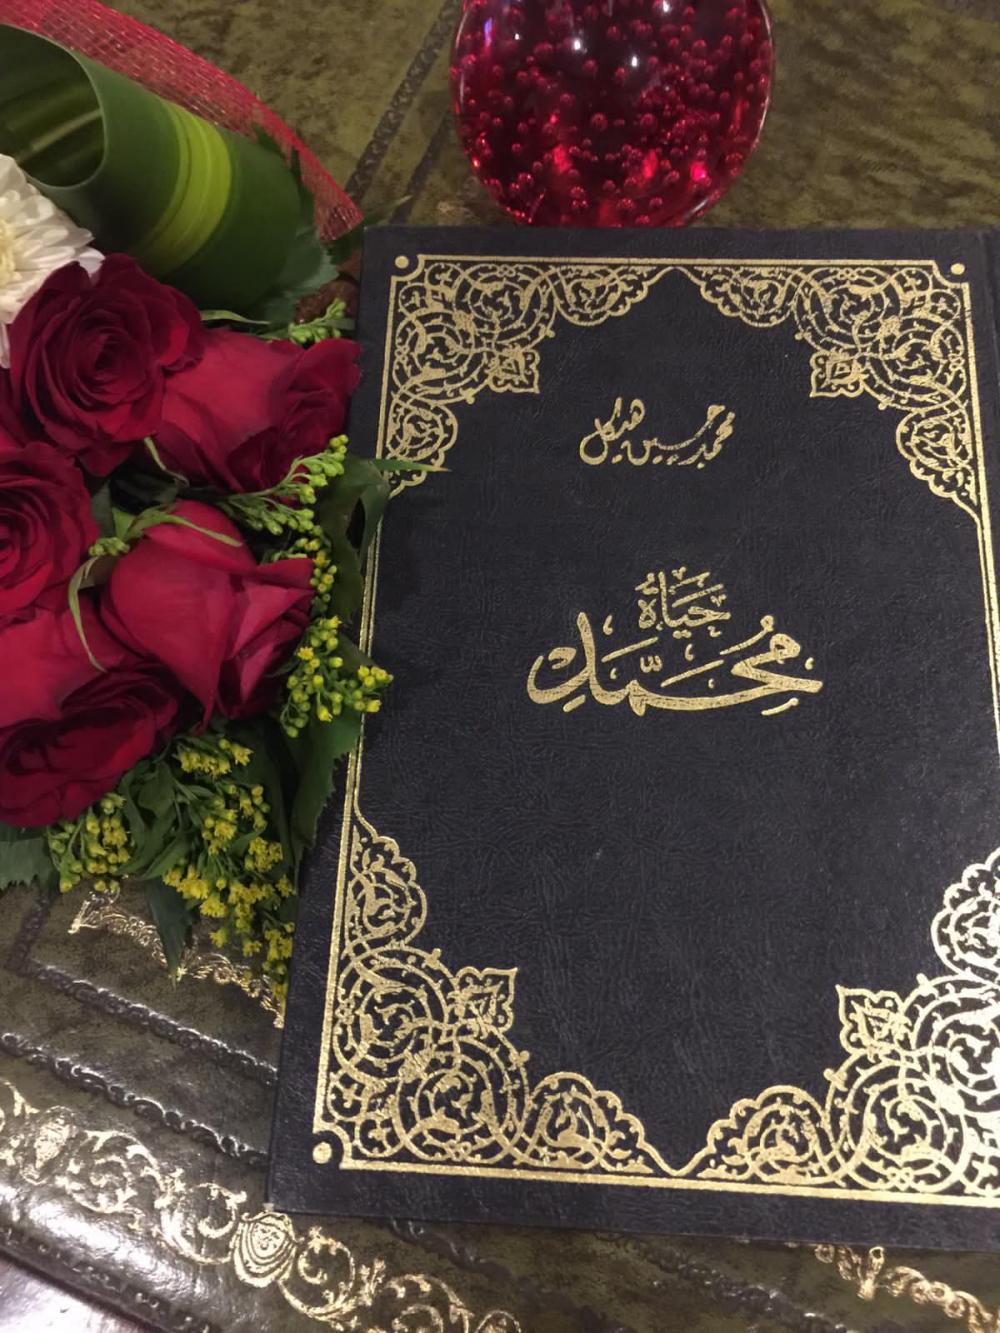 محمد حسين هيكل
حَيَاةُ
مُحَمَّدٍ